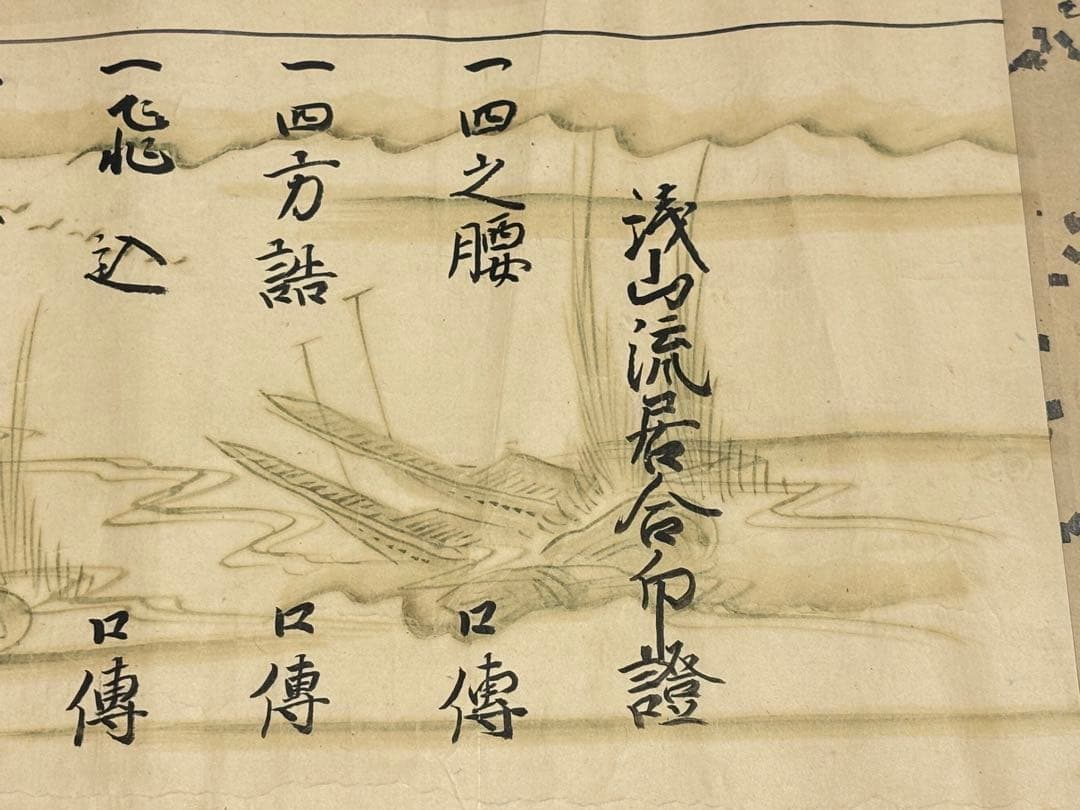 浅山流居合印證
一四之腰 口傳
一四方詰 口傳
一飛込 口傳